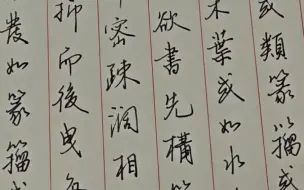 或類篆籀或
木葉或如水
欲書先構
密疎濶相
抑而後曳
發如篆籀或